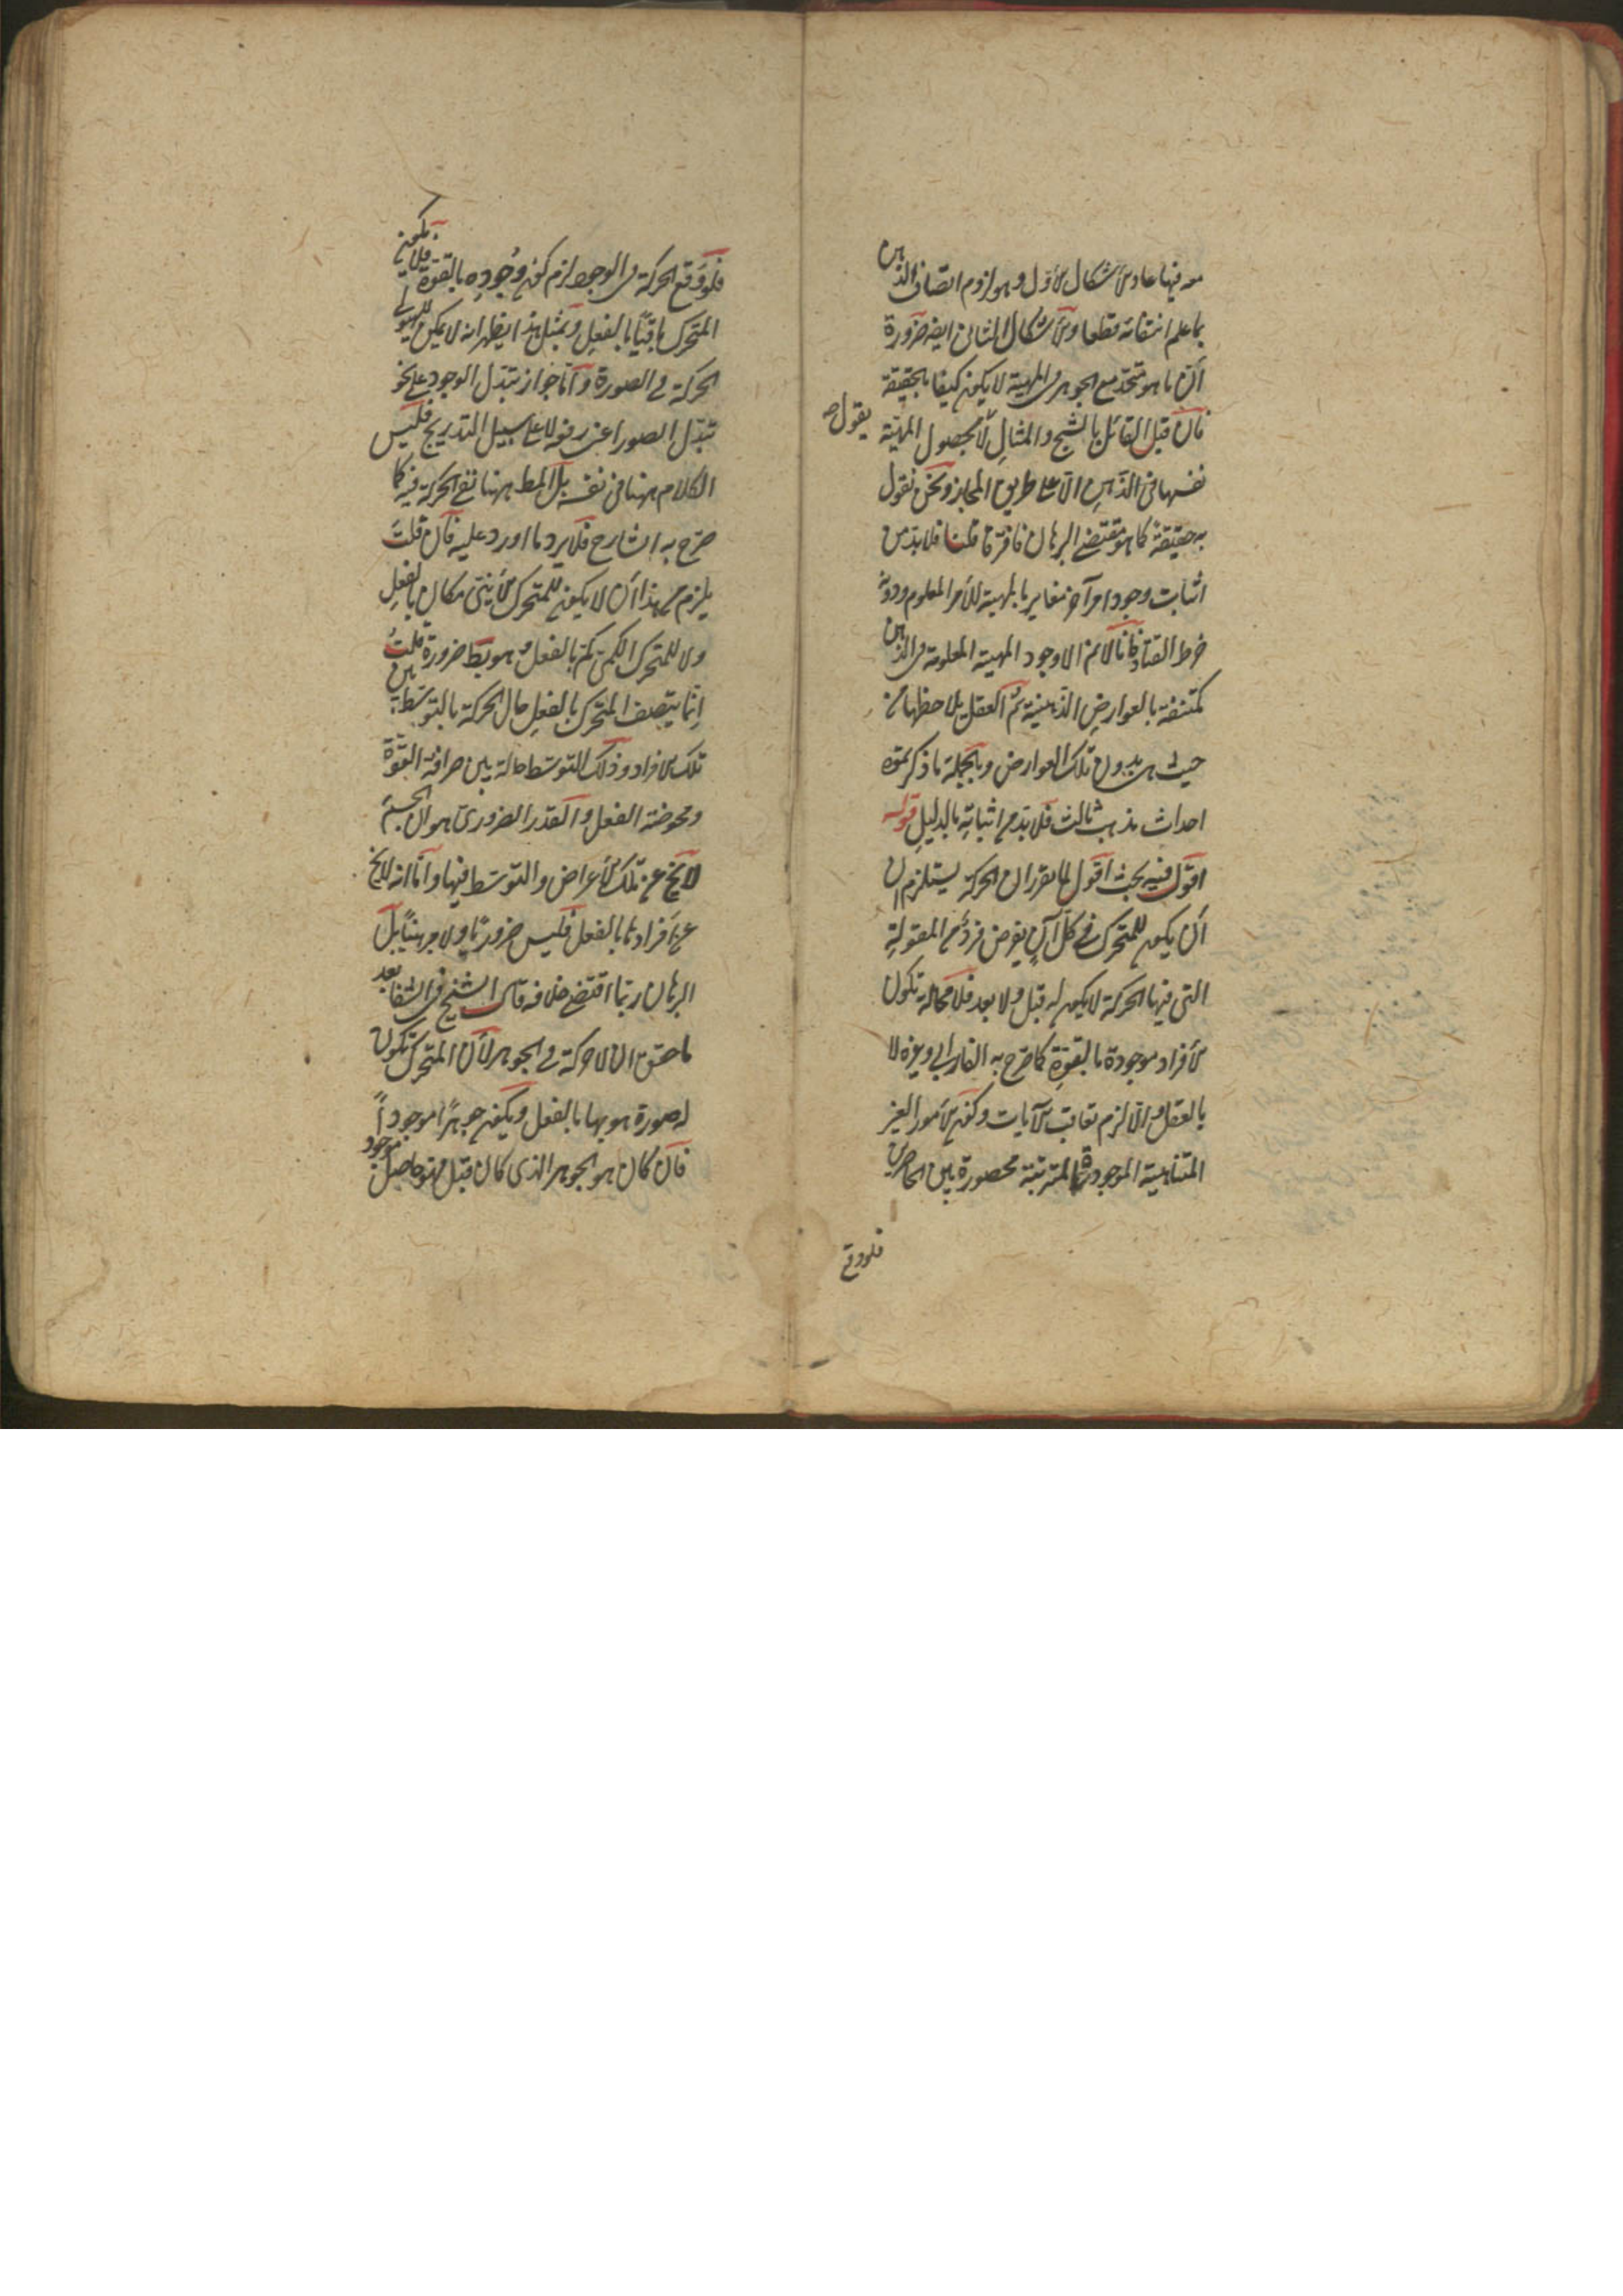 معه فيها عاد الأشكال الأول وهو لزوم اتصاف الذهن
بما علم انتفائه قطعا والأشكال الثاني ايضه ضرورة
أن ما هو متحد مع الجوهر في المهية لا يكون كيفا بالحقيقة
فان قيل القائل بالشبح والمثال لا يقول بحصول المهية
نفسها في الذهن الا على طريق المجاز ونحن نقول
به حقيقة كما هو مقتضى البرهان فافترقا قلنا فلا بد من
اثبات وجود امر آخر مغاير بالمهية للأمر المعلوم ودونه
خرط القتاد فانا لانم الا وجود المهية المعلومة في الذهن
مكتنفة بالعوارض الذهنية ثم العقل يلاحظها من
حيث هي بدون تلك العوارض وبالجملة ما ذكر يموه
احداث مذهب ثالث فلا بد من اثباته بالدليل قوله
اقول فيه بحث اقول لما تقرر ان الحركة يستلزم
أن يكون للمتحرك في كل آن يفرض فرد من المقولة
التي فيها الحركة لا يكون له قبل ولا بعد فلا محالة تكون
الأفراد موجودة بالقوة كما صرح به الفارابي وغيره لا
بالفعل والا لزم تعاقب الآنات وكون الأمور الغير
المتناهية الموجودة المترتبة محصورة بين الحاصرين
فلو وقع
فلو وقع الحركة في الوجود لزم كون وجوده بالقوة فلا يكون
المتحرك باقيا بالفعل وبمثل هذا يظهر انه لا يمكن للهيولى
الحركة في الصورة وأما جواز تبدل الوجود على نحو
تبدل الصور اعني دفعة لا على سبيل التدريج فليس
الكلام ههنا في نفسه بل المط ههنا نفي الحركة فيه كما
صرح به الشارح فلا يرد ما اورد عليه فان قلت
يلزم من هذا أن لا يكون للمتحرك الأيني مكان بالفعل
ولا للمتحرك الكمي كم بالفعل وهو بط ضرورة قلت
انما يتصف المتحرك بالفعل حال الحركة بالتوسط بين
تلك الأفراد وذلك التوسط حالة بين صرافة القوة
ومحوضة الفعل والقدر الضروري هو ان الجسم
لا يخ عن تلك الأعراض والتوسط فيها واما انه لا يخ
عن أفرادها بالفعل فليس ضروريا ولا مبرهنا بل
البرهان ربما اقتضى خلافه قال الشيخ في الشفا بعد
ما حقق ان لا حركة في الجوهر لأن المتحرك تكون
له صورة هو بها بالفعل ويكون جوهرا موجودا
فان كان هو الجوهر الذي كان قبل فهو حاصل موجود